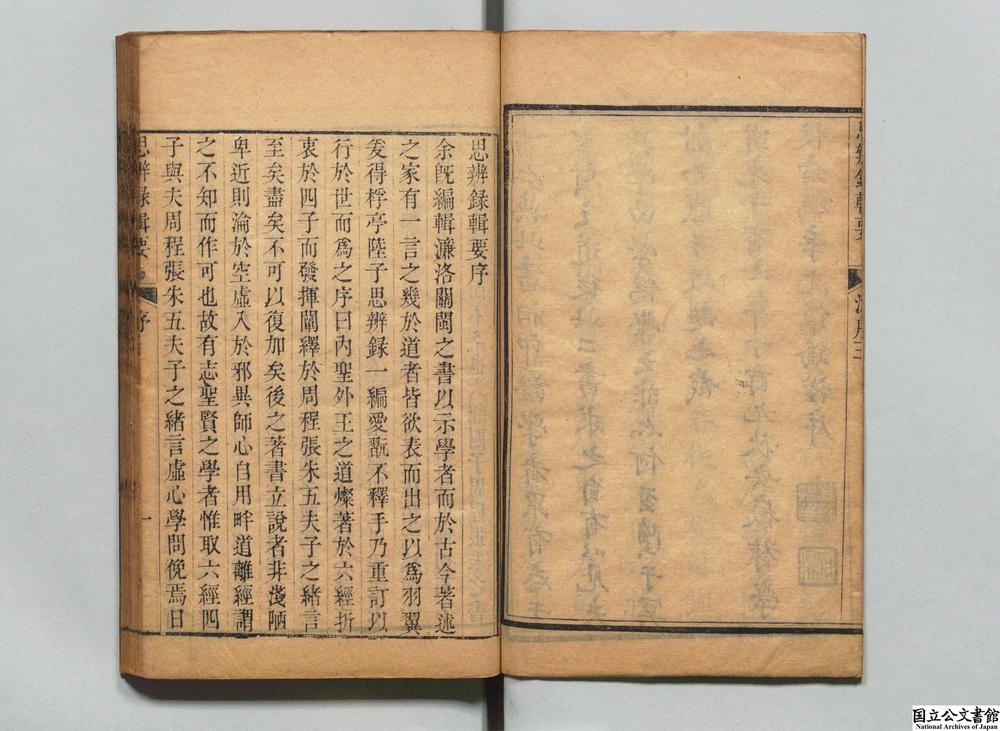 思辨錄輯要
思辨錄輯要序
余旣編輯濂洛關閩之書以示學者而於古今著述
之家有一言之幾於道者皆欲表而出之以爲羽翼
爰得桴亭陸子思辨錄一編愛翫不釋手乃重訂以
行於世而爲之序曰內聖外王之道燦著於六經折
衷於四子而發揮闡繹於周程張朱五夫子之緒言
至矣盡矣不可以復加矣後之著書立說者非淺陋
卑近則淪於空虛入於邪異師心自用畔道離經謂
之不知而作可也故有志聖賢之學者惟取六經四
子與夫周程張朱五夫子之緒言虛心學問俛焉日
思辨錄輯要 序 一
国立公文書館
National Archives of Japan